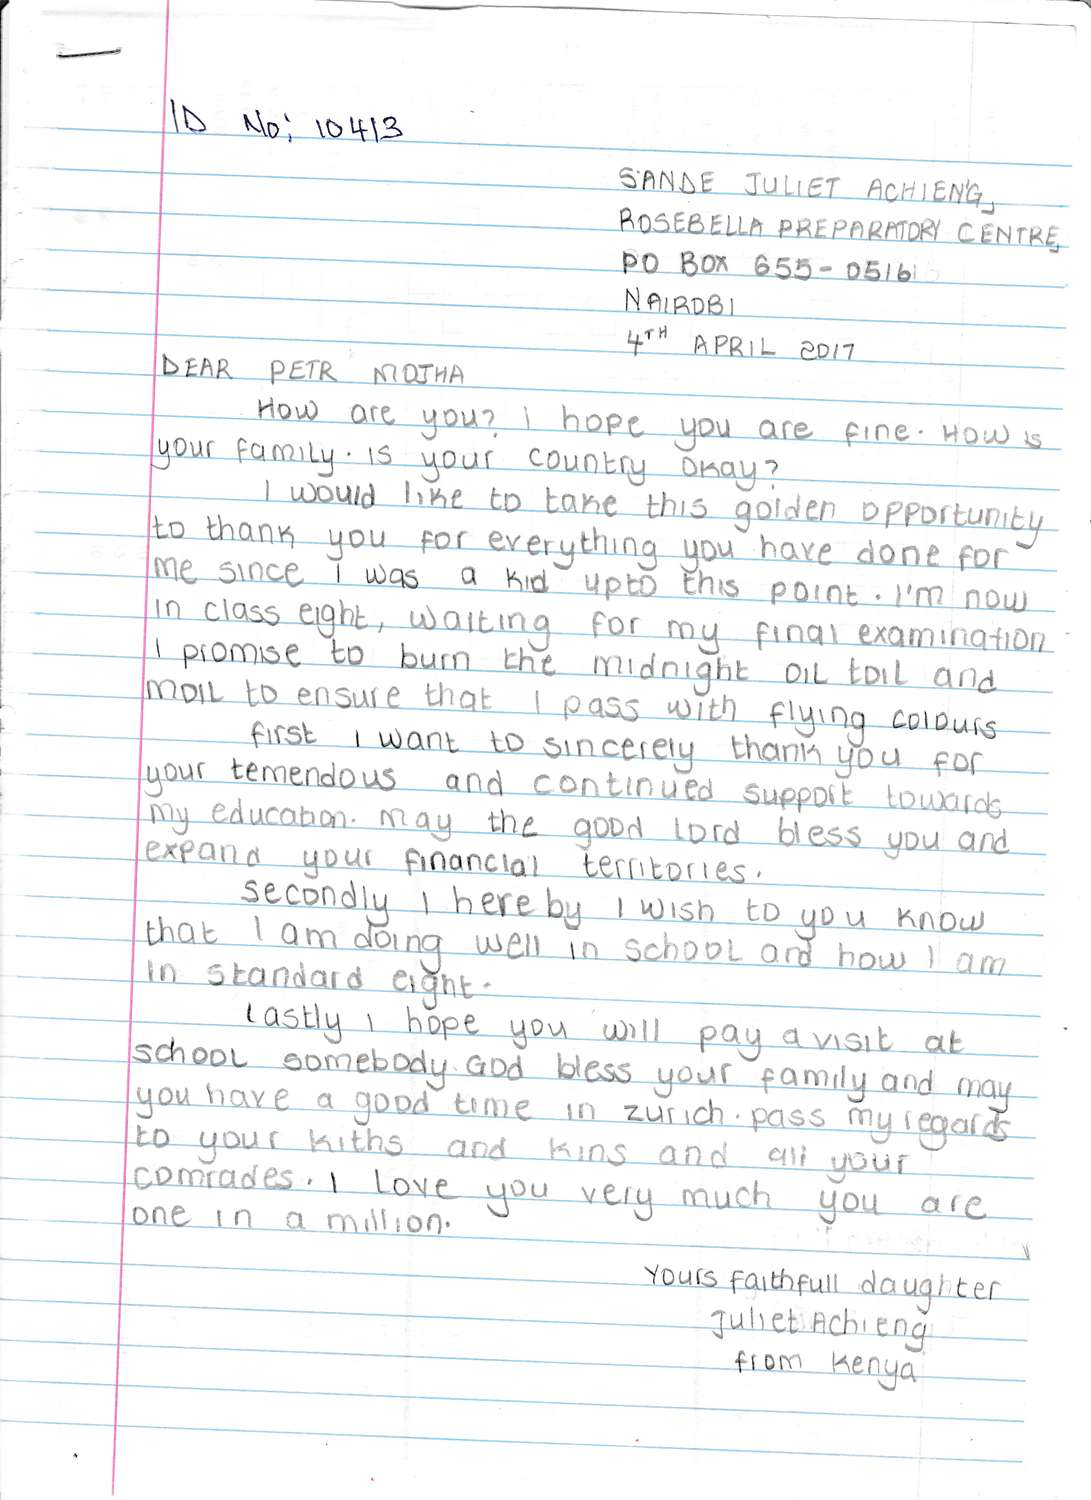 ID No: 10413
SANDE JULIET ACHIENG,
ROSEBELLA PREPARATORY CENTRE,
PO BOX 655-0516
NAIROBI
4TH APRIL 2017
DEAR PETR MOTHA
How are you? I hope you are fine. How is
your family. is your country okay?
I would like to take this golden opportunity
to thank you for everything you have done for
me since I was a kid upto this point. I'm now
in class eight, waiting for my final examination
I promise to burn the midnight oil toil and
moil to ensure that I pass with flying colours
first I want to sincerely thank you for
your temendous and continued support towards
my education. may the good lord bless you and
expand your financial territories.
secondly I here by I wish to you know
that I am doing well in school and how I am
in standard eight.
Lastly I hope you will pay a visit at
school somebody. God bless your family and may
you have a good time in zurich. pass my regards
to your kiths and kins and all your
comrades. I Love you very much you are
one in a million.
Yours faithfull daughter
Juliet Achieng
from Kenya